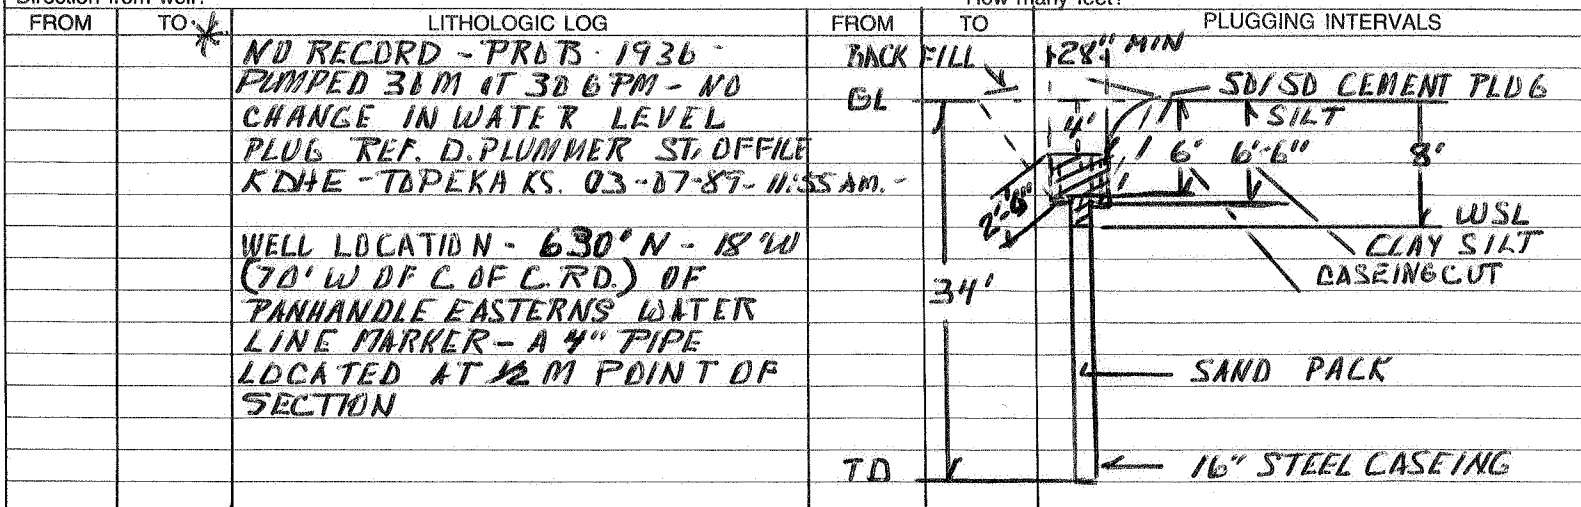 Direction from well? How many feet?
FROM TO * LITHOLOGIC LOG FROM TO PLUGGING INTERVALS
NO RECORD - PROB - 1936
PUMPED 30 M AT 30 GPM - NO
CHANGE IN WATER LEVEL
PLUG REF. D. PLUMMER ST. OFFICE
KDHE - TOPEKA KS. 03-07-89- 11:55 AM. -
WELL LOCATION - 630' N - 18' W
(70' W OF C OF C. RD.) OF
PANHANDLE EASTERNS WATER
LINE MARKER - A 4" PIPE
LOCATED AT 1/2 M POINT OF
SECTION
BACK FILL
28" MIN
50/50 CEMENT PLUG
GL
SILT
4'
6' 6'-6" 8'
2'-6"
WSL
CLAY SILT
CASEINGCUT
34'
SAND PACK
TD
16" STEEL CASEING